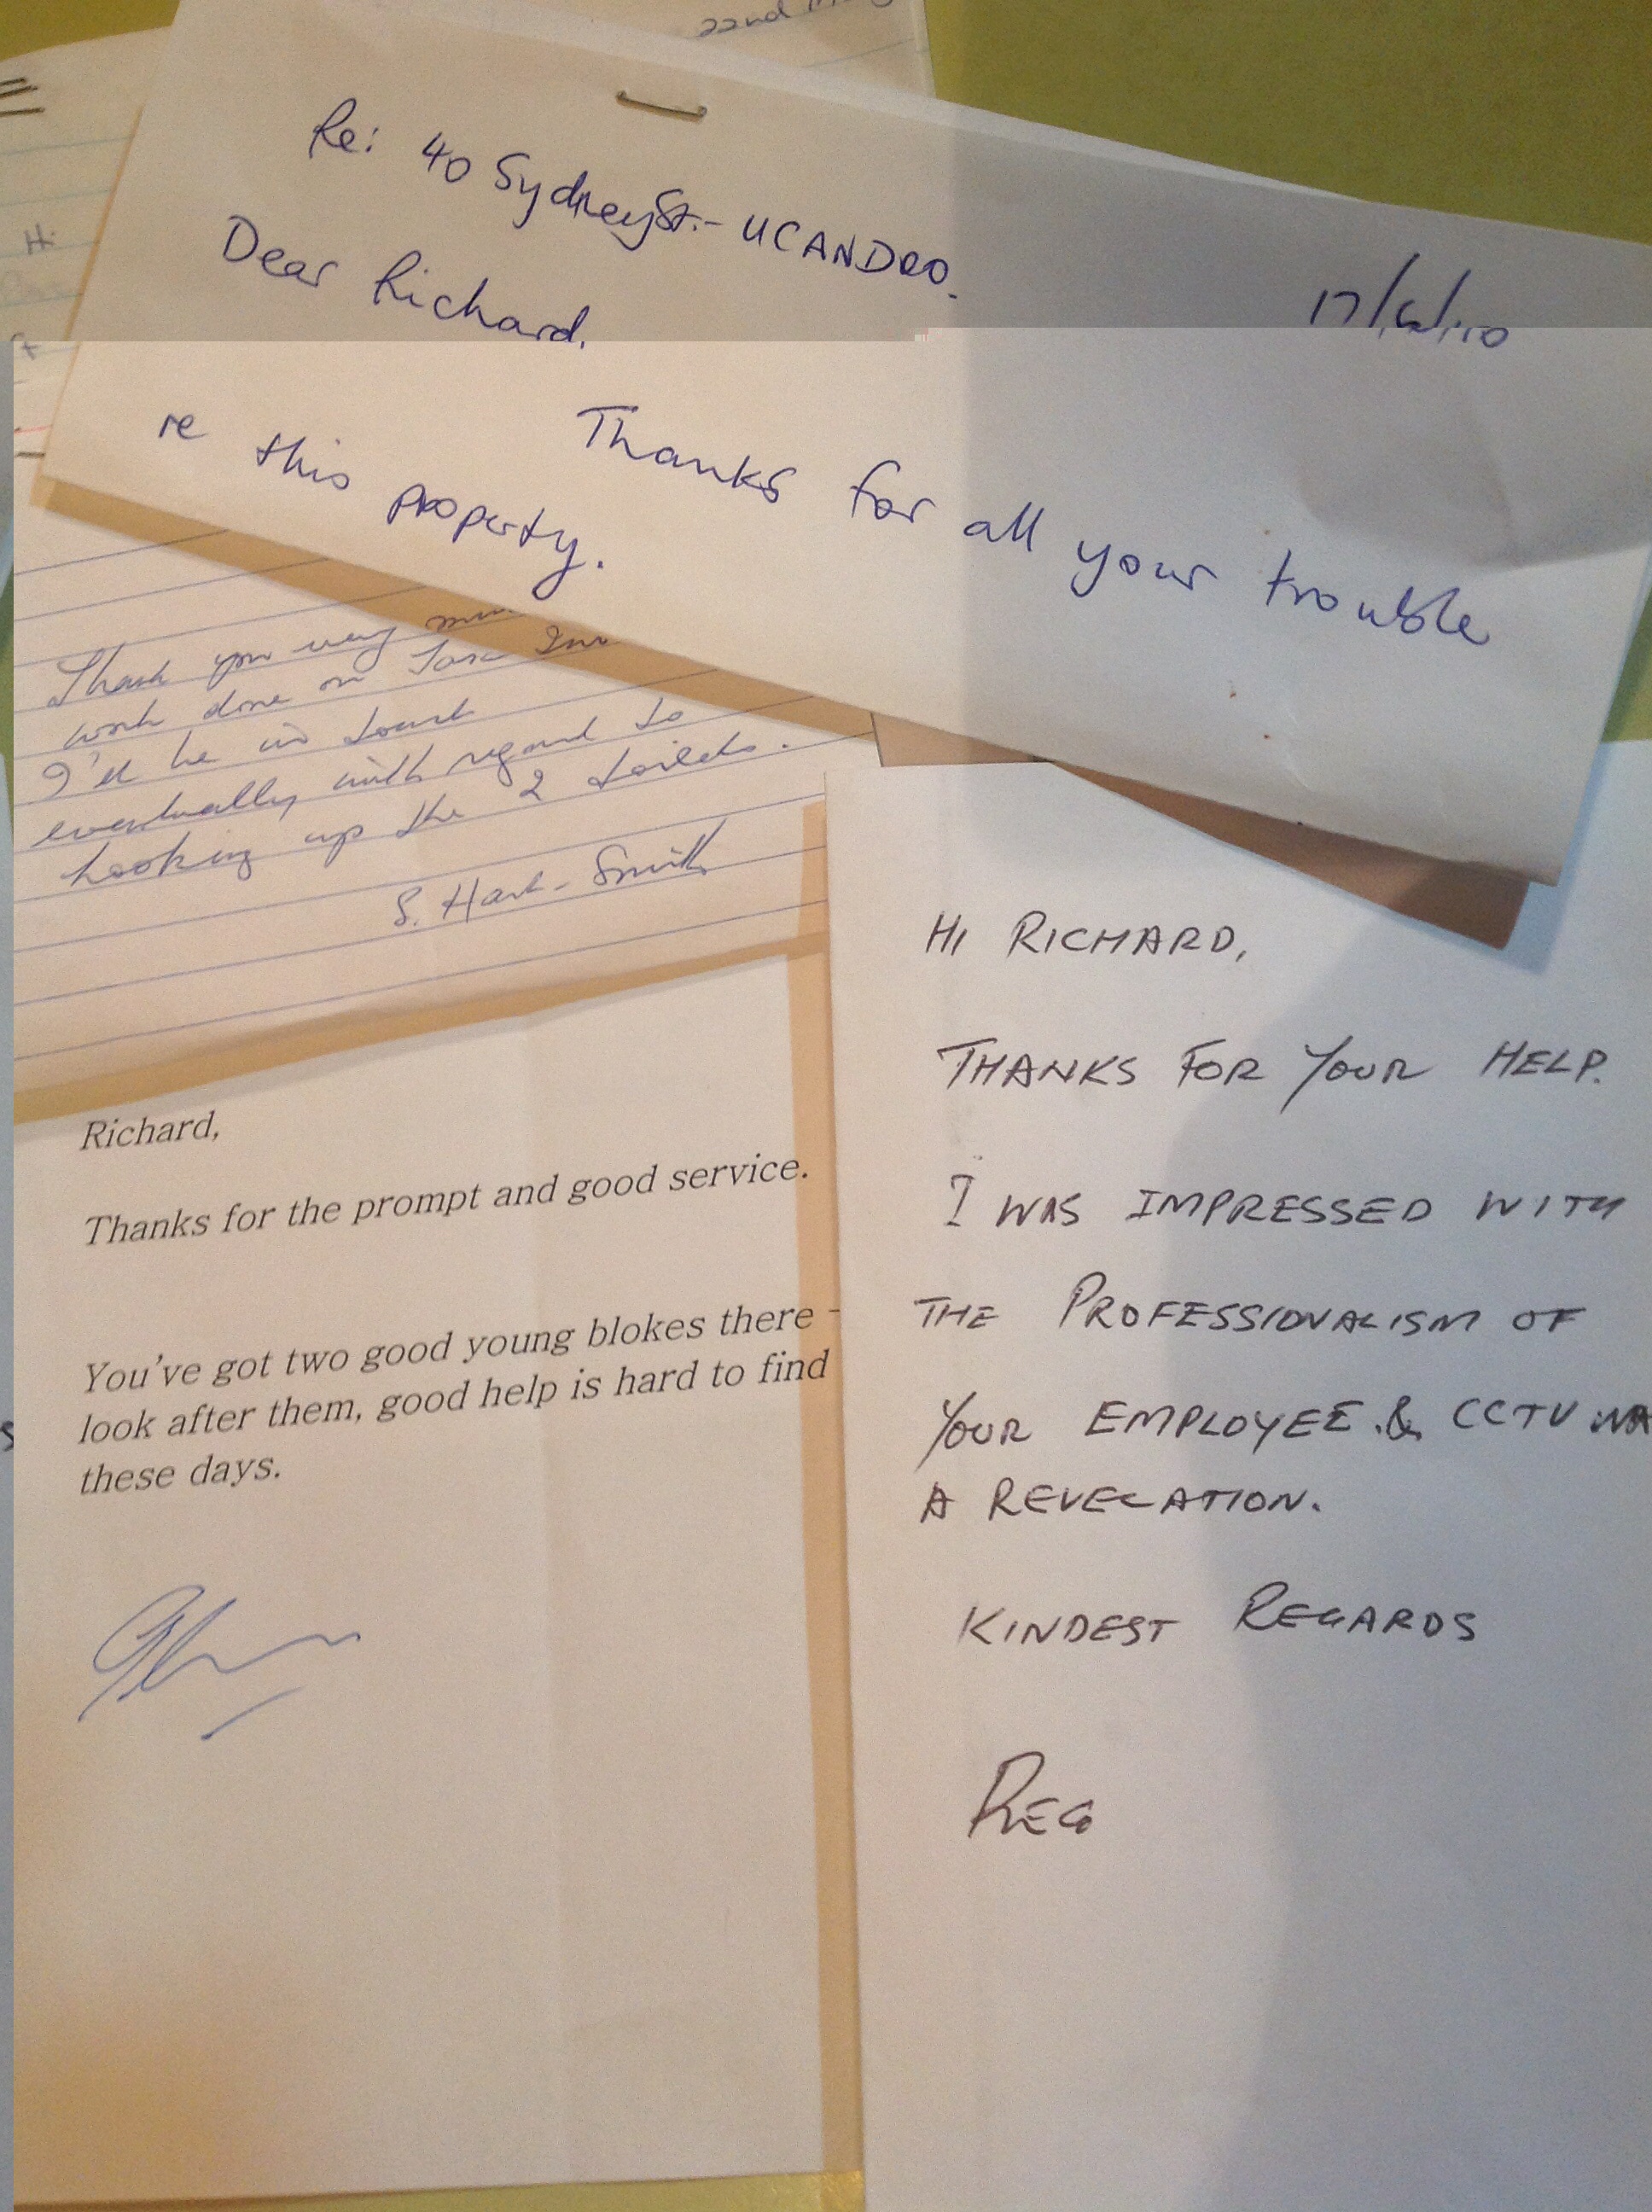 22nd
Re: 40 Sydney St. - UCANDOO.
Hi
Dear Richard.
Thanks for all your trouble
re this property.
Thank you very
work done on
I'll be in touch
eventually with regard to
hooking up the 2 toilets.
S. Hart-Smith
Richard,
Thanks for the prompt and good service.
You've got two good young blokes there -
look after them, good help is hard to find
these days.
HI RICHARD,
THANKS FOR YOUR HELP.
I WAS IMPRESSED WITH
THE PROFESSIONALISM OF
YOUR EMPLOYEE & CCTV WA
A REVELATION.
KINDEST REGARDS
REG